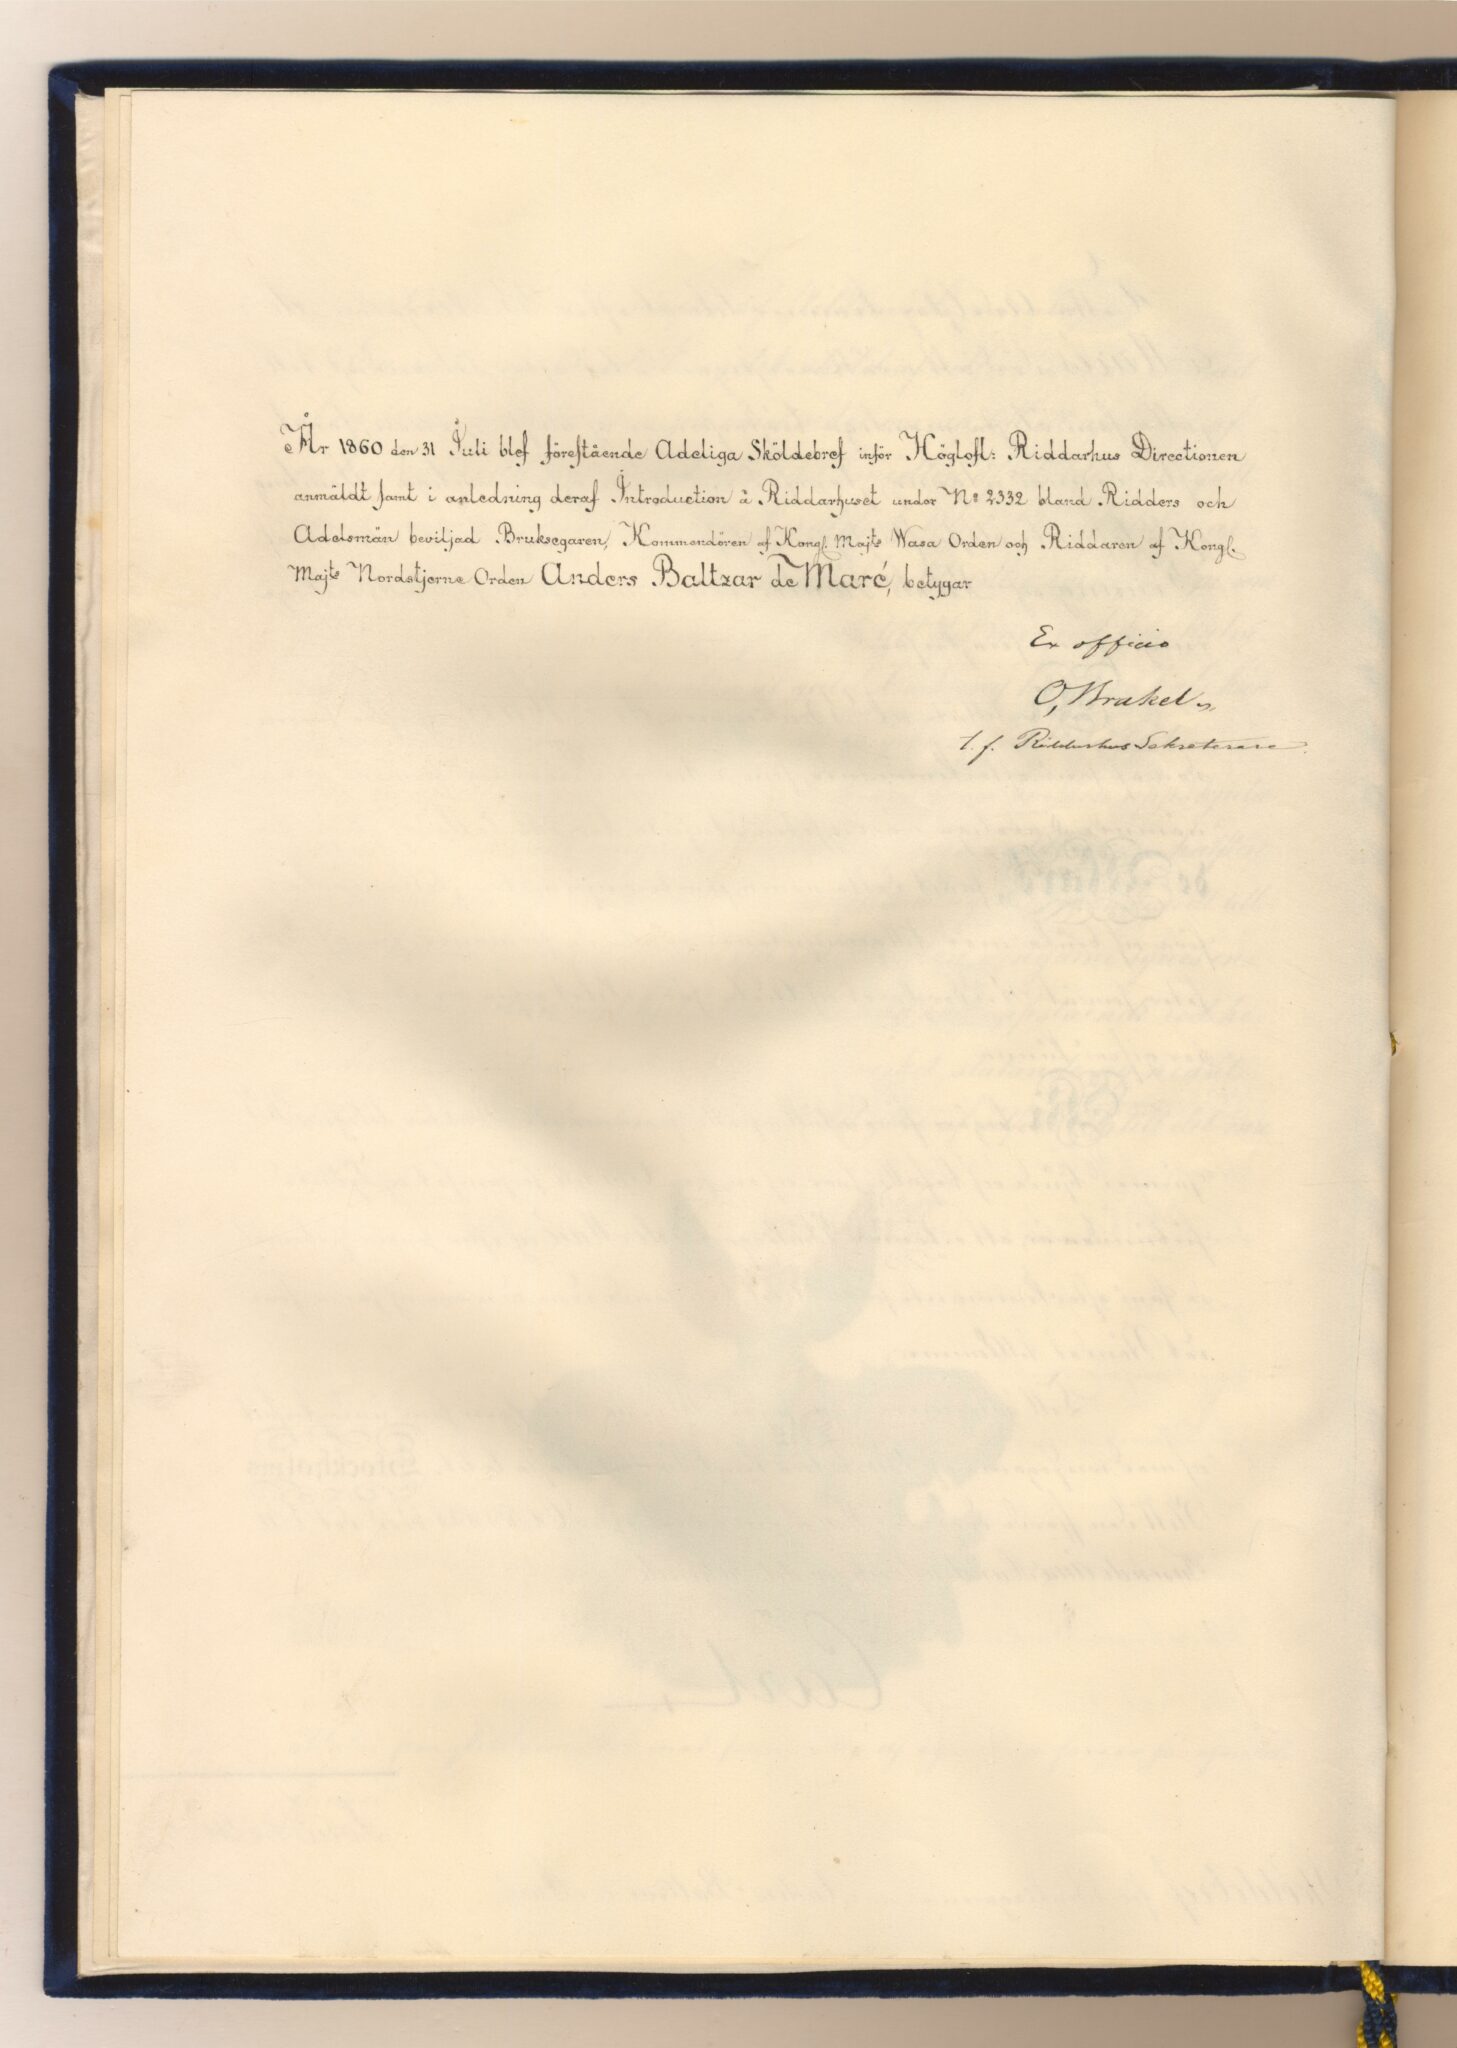 År 1860 den 31 Juli blef föreſtående Adeliga Sköldebref inför Höglofl: Riddarhus Directionen
anmäldt ſamt i anledning deraf Introduction å Riddarhuset under Nº 2332 bland Ridders och
Adelsmän beviljad Bruksegaren, Kommendören af Kongl. Majts Wasa Orden och Riddaren af Kongl.
Majts Nordstjerne Orden Anders Baltzar de Maré, betygar
Ex officio
O, Wrakel
t. f. Riddarhus Sekreterare.